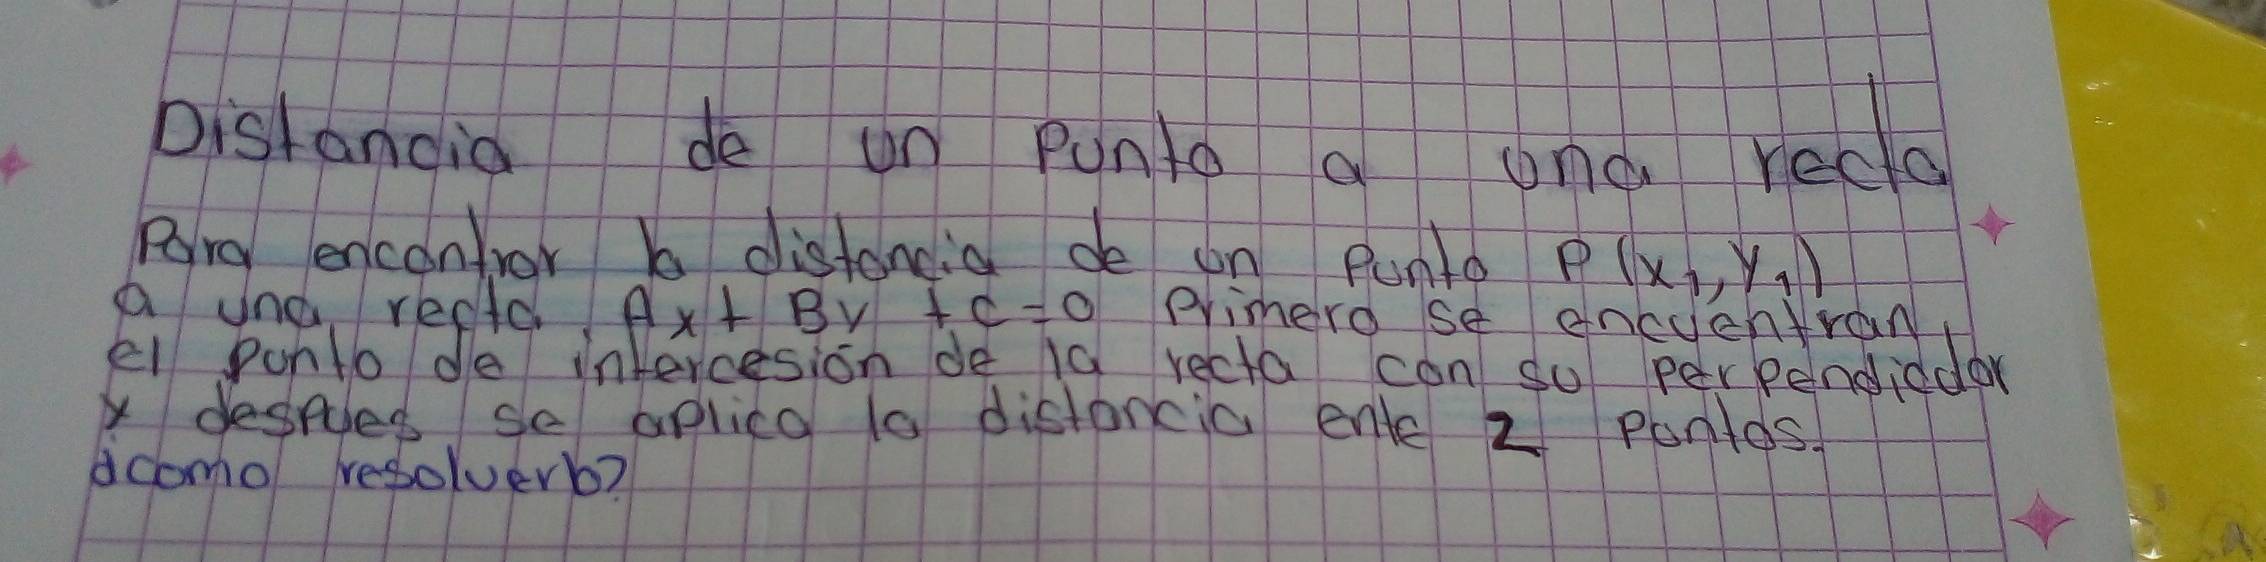 Distancia de un Punto a una recta
Para encontrar la distancia de un Punto P(x₁, y₁)
a una recta Ax + By + c = 0 Primero se encuentran
el punto de intercesión de la recta con su perpendicular
y despues se aplica la distancia ente 2 Puntos.
¿como resolverlo?